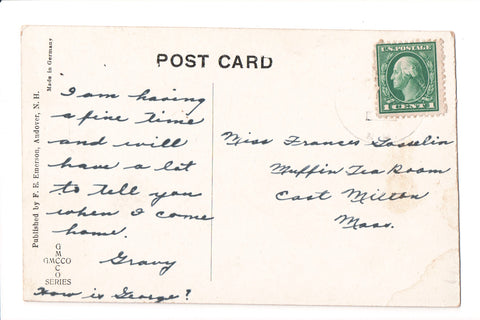 POST CARD
Made in Germany
Published by F. E. Emerson, Andover, N. H.
U.S. POSTAGE
1 CENT 1
I am having
a fine time
and will
have a lot
to tell you
when I come
home.
Gravy
How is George?
Miss Frances Gosselin
Muffin Tea Room
East Milton
Mass.
G
M
GMCCO
C
O
SERIES